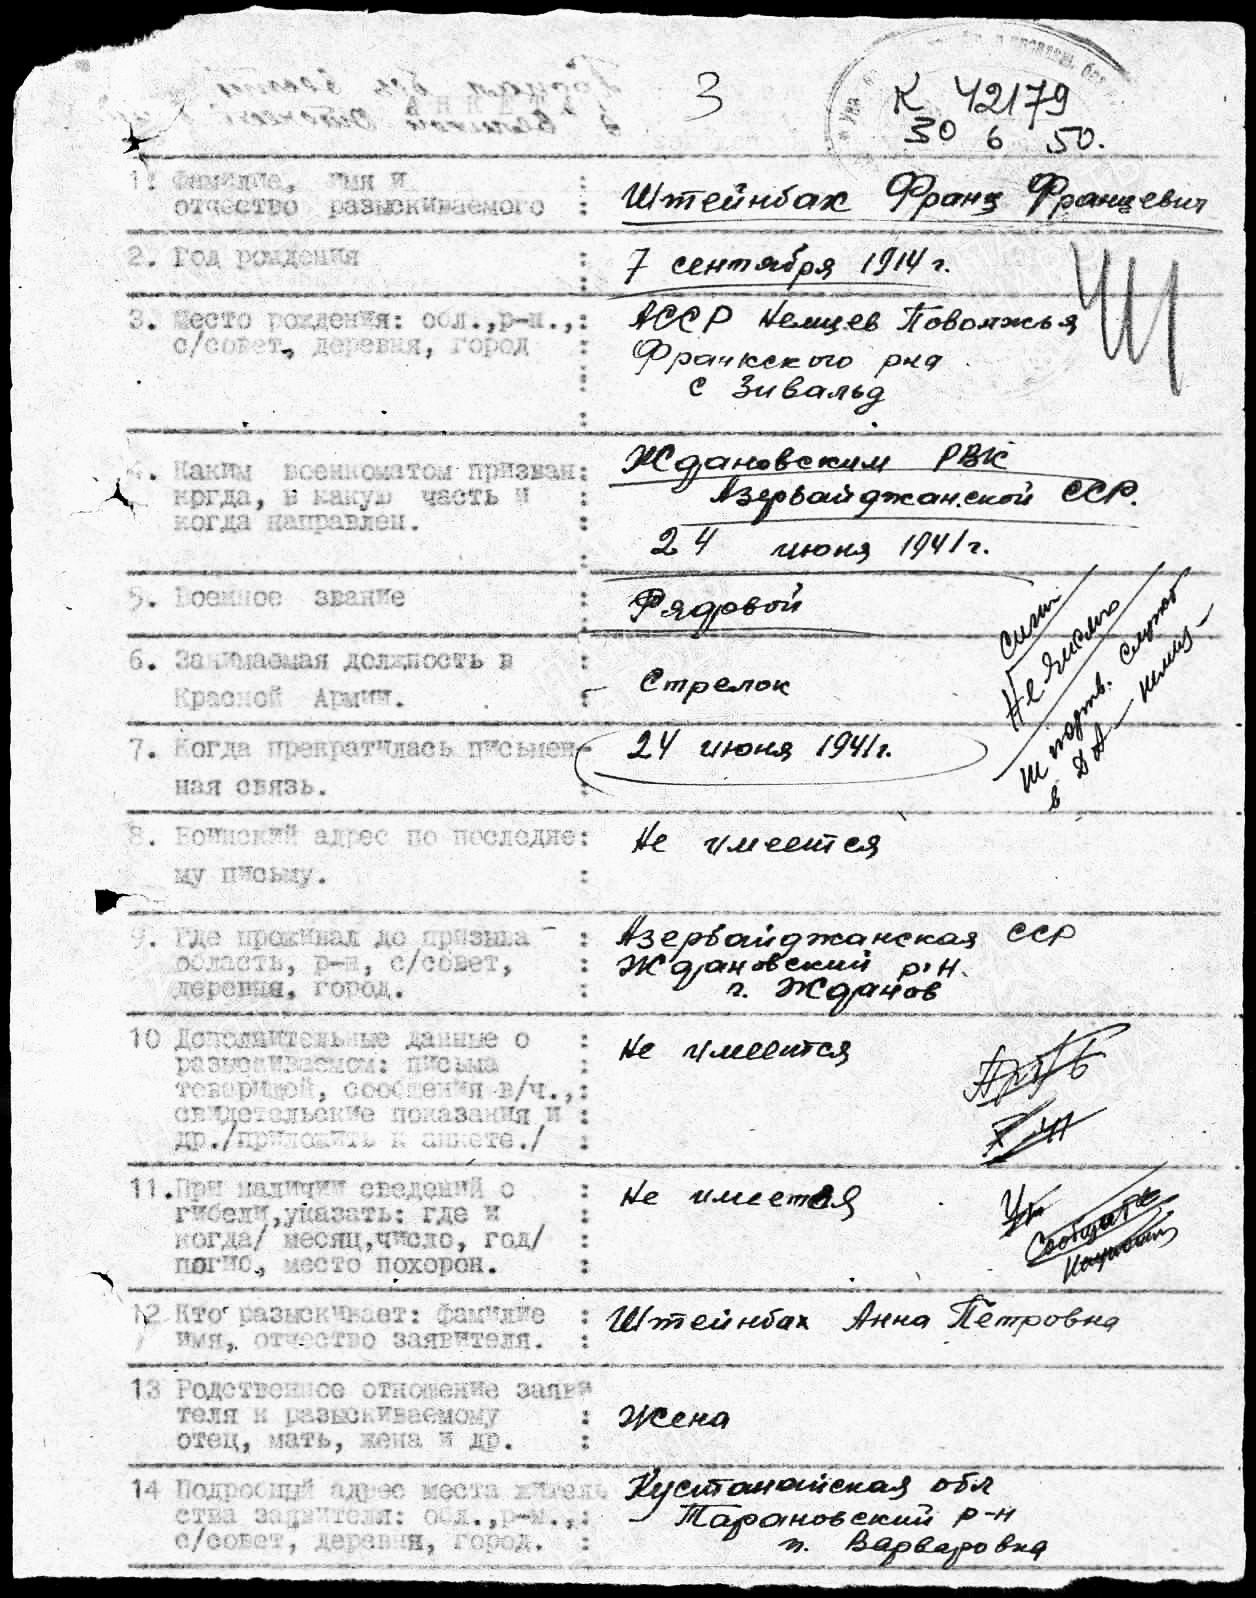 3
К 42179
30 6 50.
1. Фамилие, имя и
отчество разыскиваемого :
Штейнбах Франц Францевич
2. Год рождения :
7 сентября 1914 г.
3. Место рождения: обл.,р-н.,:
с/совет, деревня, город :
АССР Немцев Поволжья
Франкского р-на
с Зивальд
4. Каким военкоматом призван:
когда, в какую часть и :
когда направлен. :
Ждановским РВК
Азербайджанской ССР.
24 июня 1941 г.
5. Военное звание :
Рядовой
6. Занимаемая должность в :
Красной Армии. :
Стрелок
7. Когда прекратилась письмен-
ная связь. :
24 июня 1941 г.
Не
подтв. служб
в
8. Воинский адрес по последне:
му письму. :
Не имеется
9. Где проживал до призыва :
область, р-н, с/совет, :
деревня, город. :
Азербайджанская ССР
Ждановский р-н.
г. Жданов
10 Дополнительные данные о :
разыскиваемом: письма :
товарищей, сообщения в/ч.,:
свидетельские показания и :
др./приложить к анкете./ :
Не имеется
11.При наличии сведений о :
гибели,указать: где и :
когда/ месяц,число, год/ :
погиб, место похорон. :
Не имеется
Сообщить
12 Кто разыскивает: фамилие :
имя, отчество заявителя. :
Штейнбах Анна Петровна
13 Родственное отношение заяви
теля к разыскиваемому :
отец, мать, жена и др. :
Жена
14 Подробный адрес места житель
ства заявителя: обл.,р-н.,:
с/совет, деревня, город. :
Кустанайская обл
Тарановский р-н
п. Варваровка